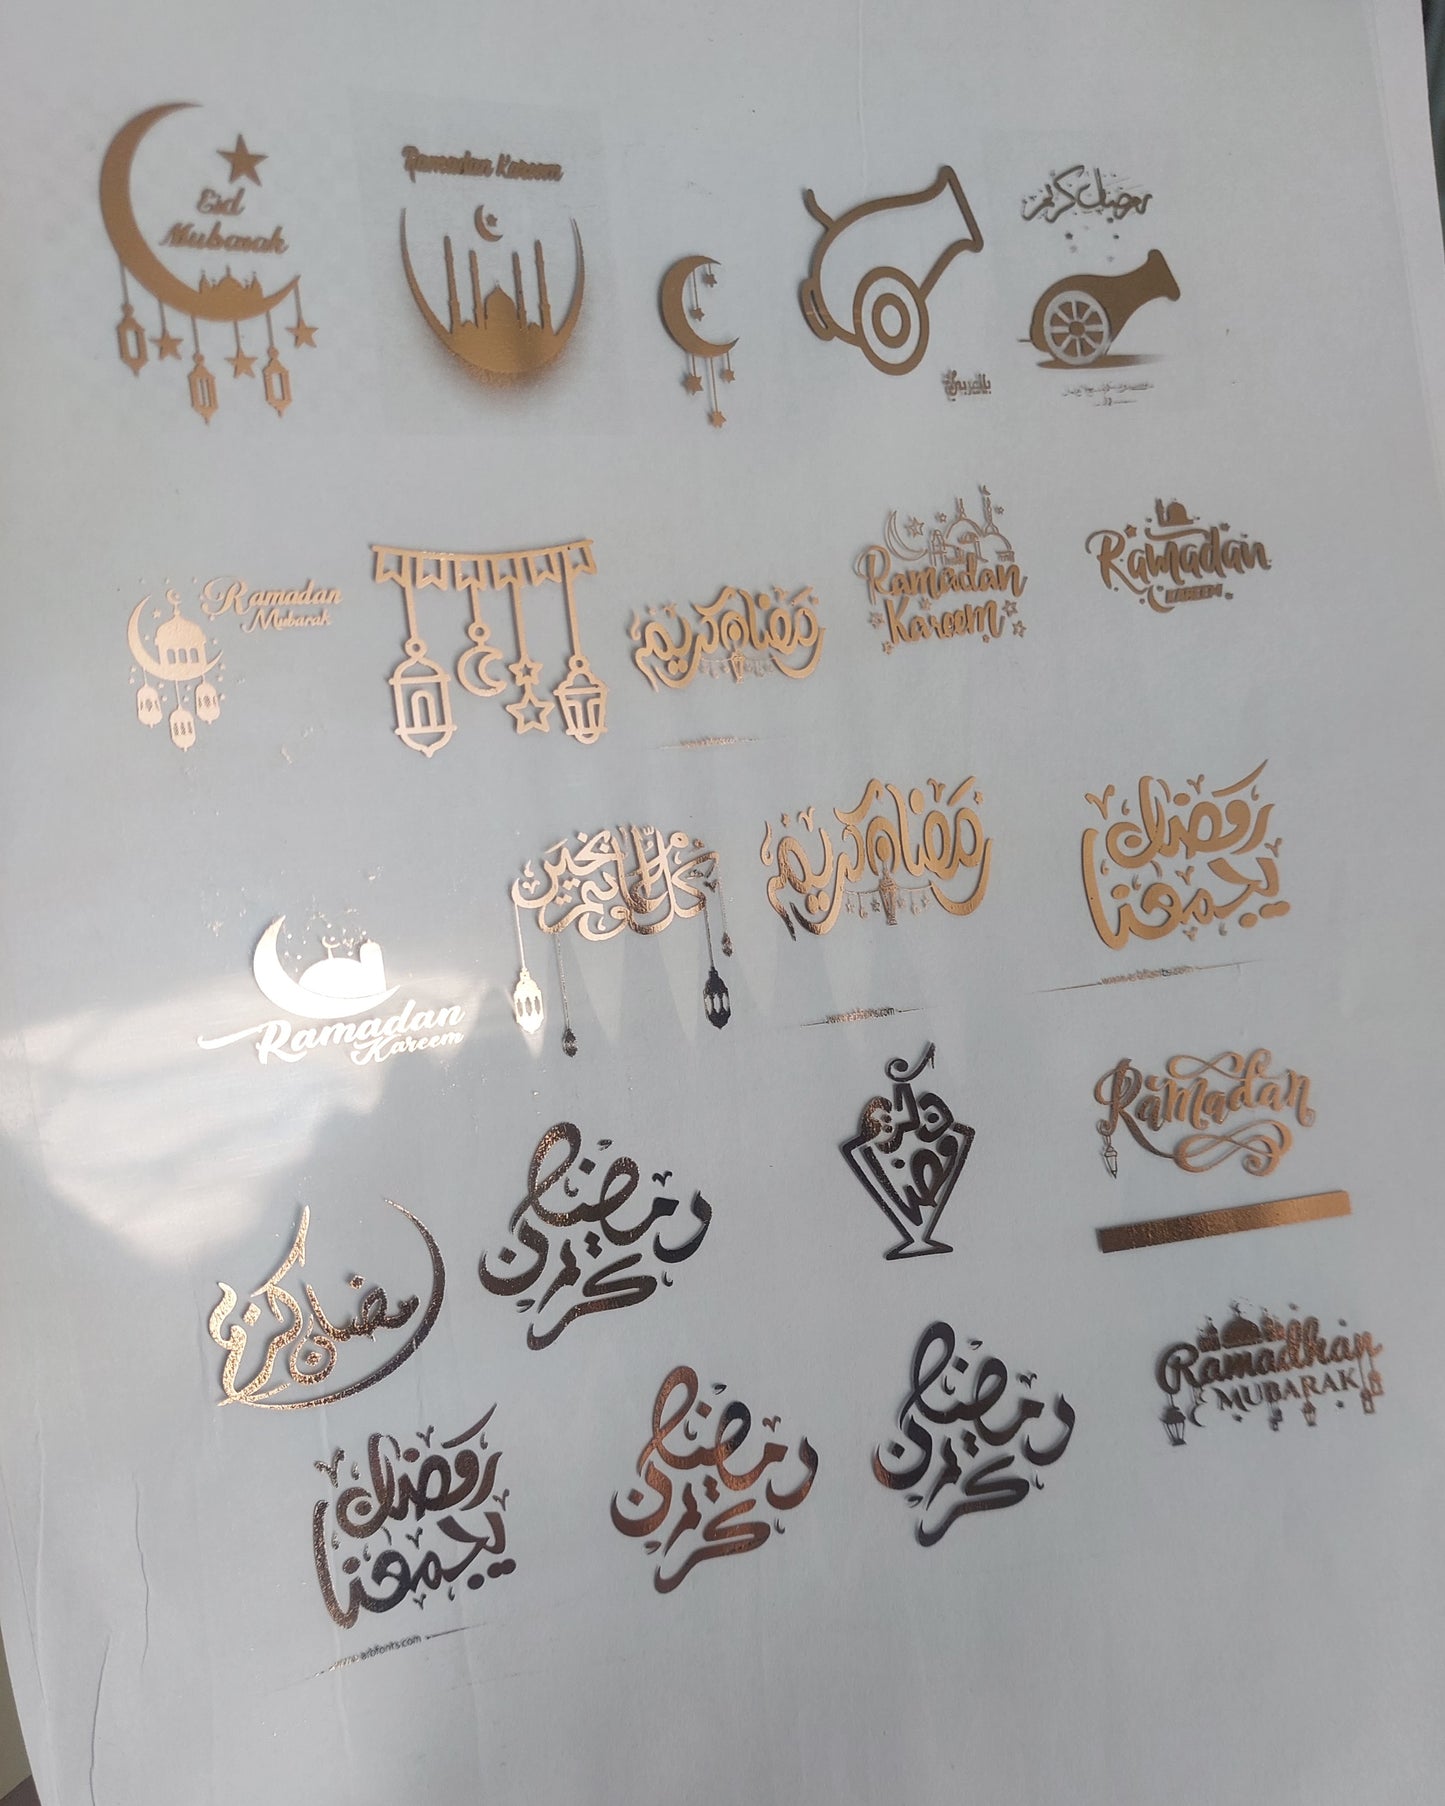 Eid
Mubarak
Ramadan Kareem
بالعربي
رمضان كريم
Ramadan
Mubarak
رمضان كريم
Ramadan
Kareem
Ramadan
KAREEM
Ramadan
Kareem
كل عام وانتم بخير
رمضان كريم
www.arbfonts.com
رمضان
يجمعنا
www.arbfonts.com
رمضان كريم
رمضان
كريم
رمضان كريم
Ramadan
رمضان
يجمعنا
www.arbfonts.com
رمضان
كريم
رمضان
كريم
Ramadhan
MUBARAK